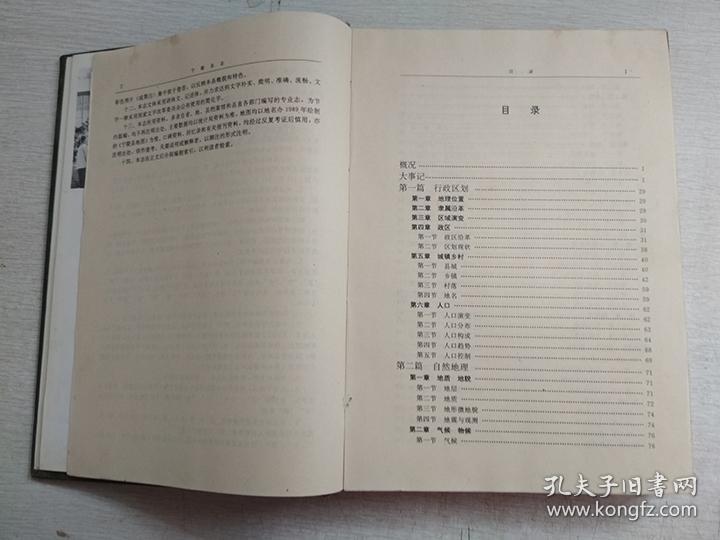 2
宁陵县志
十二、本志文体采用语体文、记述体，
十四、本志在正文后分别编制索引，以利读者检索。
目 录
1
目 录
概况 1
大事记 1
第一篇 行政区划 29
第一章 地理位置 29
第二章 隶属沿革 29
第三章 区域演变 30
第四章 政区 31
第一节 政区沿革 31
第二节 区划现状 38
第五章 城镇乡村 40
第一节 县城 40
第二节 乡镇 42
第三节 村落 59
第四节 地名 59
第六章 人口 62
第一节 人口演变 62
第二节 人口分布 63
第三节 人口构成 64
第四节 人口趋势 68
第五节 人口控制 69
第二篇 自然地理 71
第一章 地质 地貌 71
第一节 地层 71
第二节 地质 72
第三节 地形微地貌 74
第四节 地震与观测 74
第二章 气候 物候 76
第一节 气候 76
孔夫子旧书网
www.kongfz.com